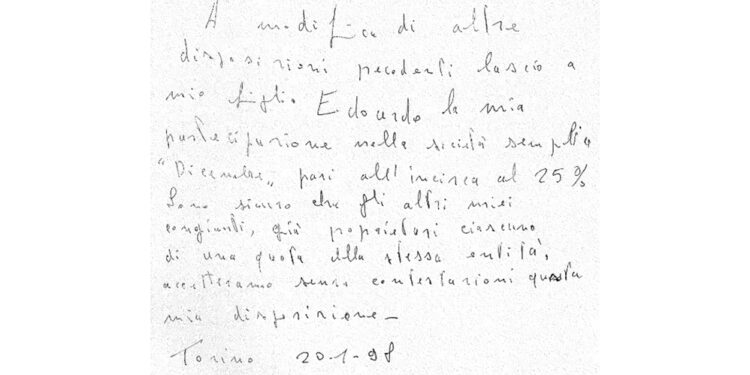 A modifica di altre
disposizioni pecedenti lascio a
mio figlio Edoardo la mia
partecipazione nella società semplice
"Dicembre„ pari all'incirca al 25%
Sono sicuro che gli altri miei
congiunti, già proprietari ciascuno
di una quota della stessa entità,
accetteranno senza contestazioni questa
mia disposizione_
Torino 20-1-98